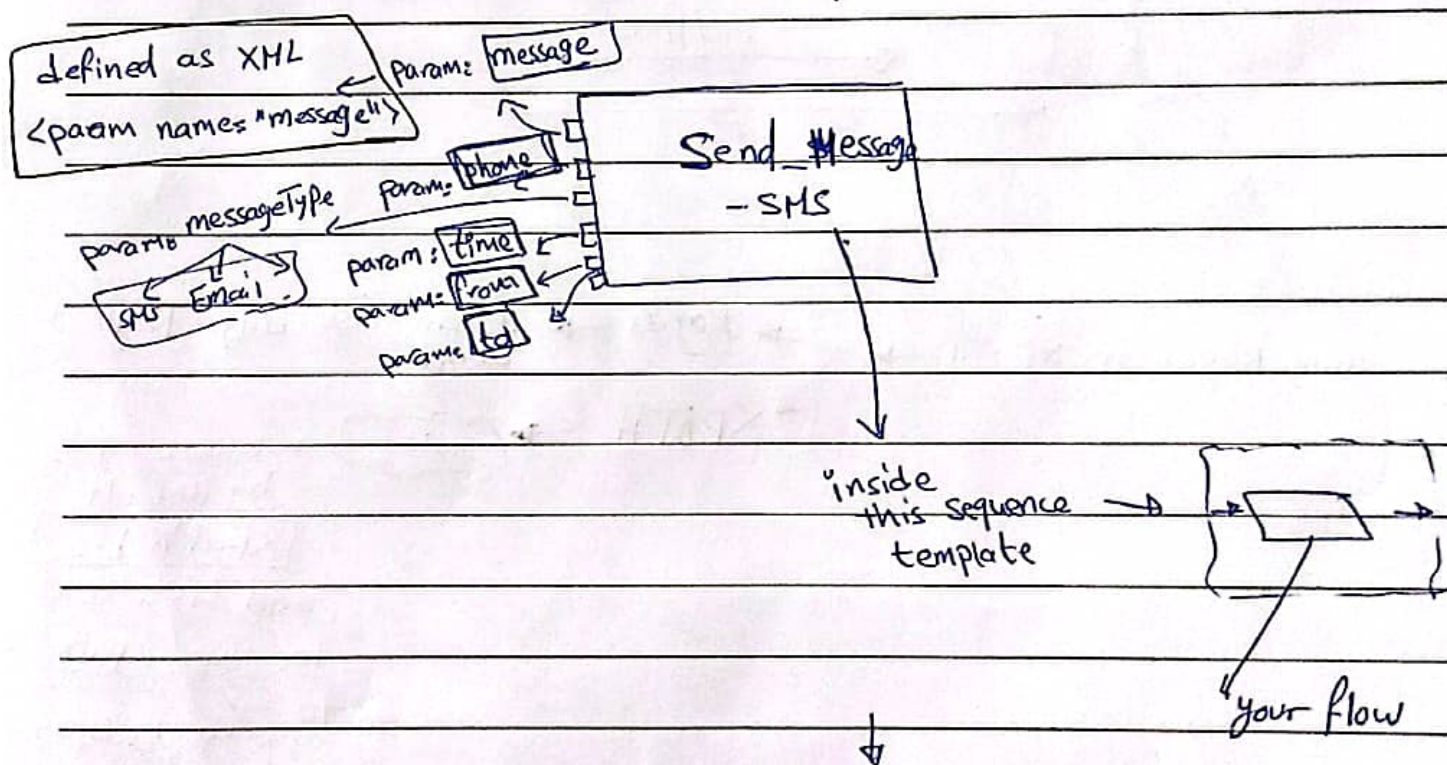 defined as XML
<param name="message">
param: message
param: phone
param: messageType
SMS Email
param: time
param: from
param: to
Send_Message
- SMS
inside
this sequence
template
your flow